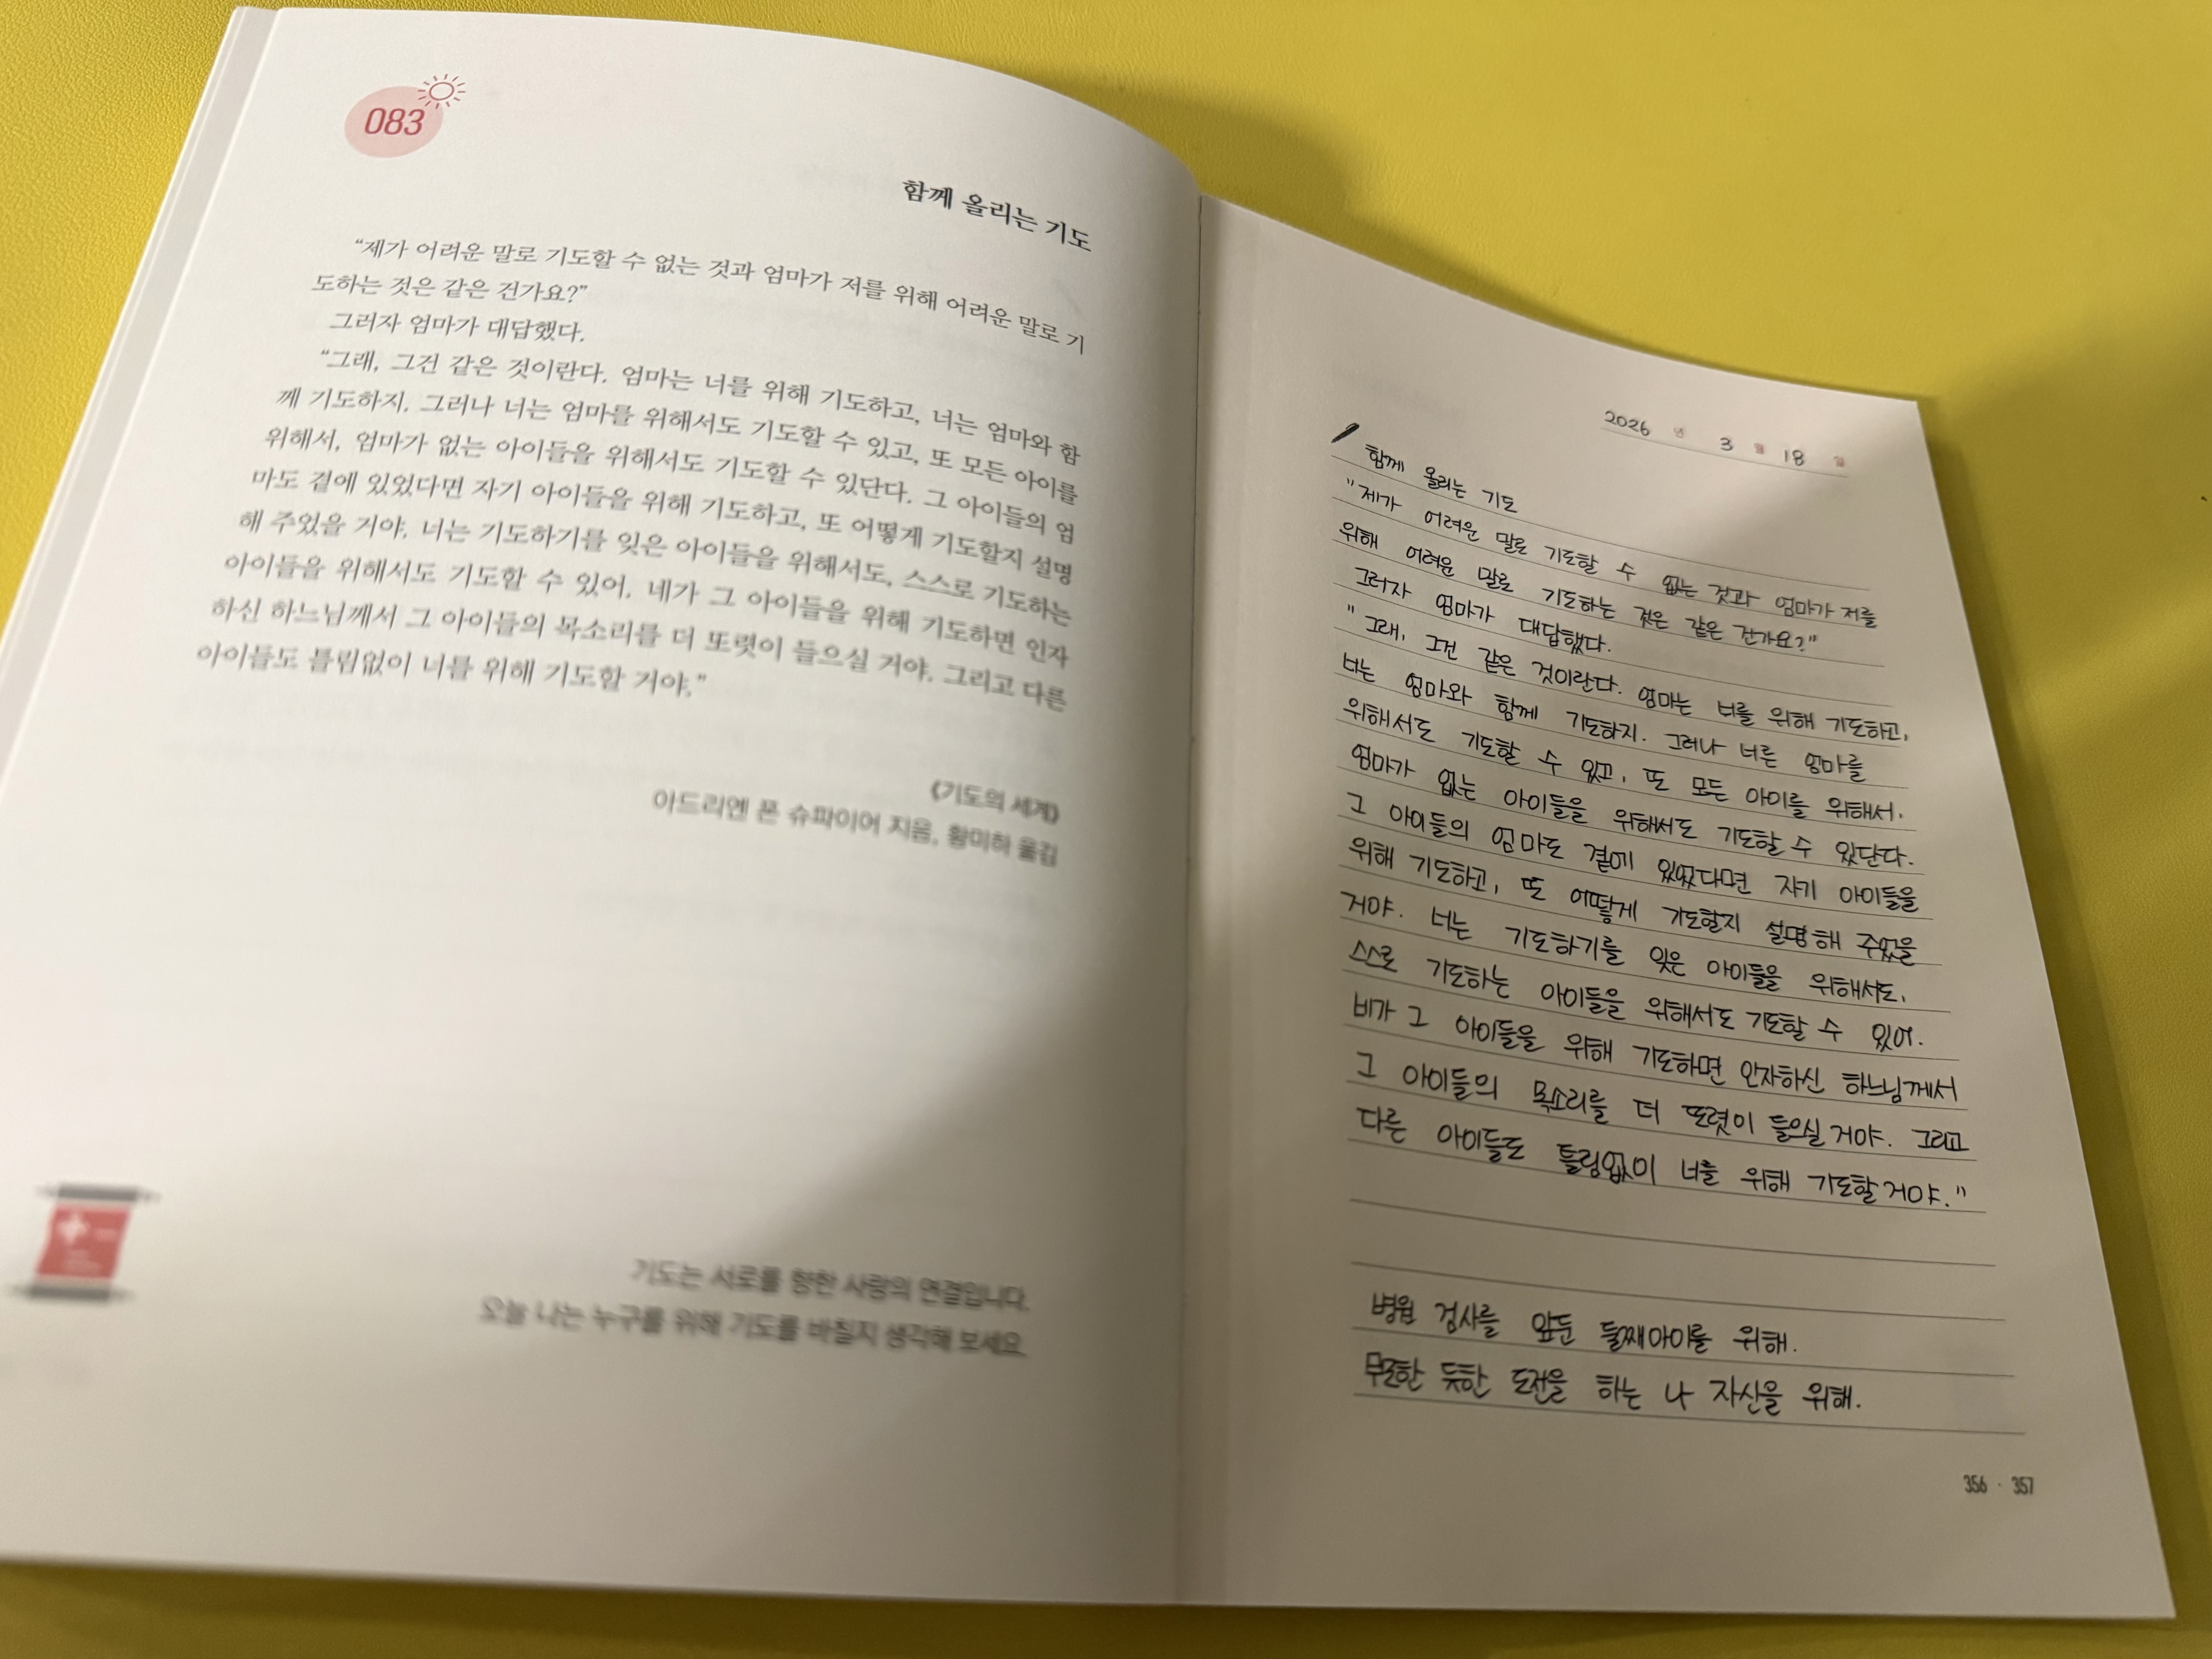 083
함께 올리는 기도
“제가 어려운 말로 기도할 수 없는 것과 엄마가 저를 위해 어려운 말로 기
도하는 것은 같은 건가요?”
그러자 엄마가 대답했다.
“그래, 그건 같은 것이란다. 엄마는 너를 위해 기도하고, 너는 엄마와 함
께 기도하지. 그러나 너는 엄마를 위해서도 기도할 수 있고, 또 모든 아이를
위해서, 엄마가 없는 아이들을 위해서도 기도할 수 있단다. 그 아이들의 엄
마도 곁에 있었다면 자기 아이들을 위해 기도하고, 또 어떻게 기도할지 설명
해 주었을 거야. 너는 기도하기를 잊은 아이들을 위해서도, 스스로 기도하는
아이들을 위해서도 기도할 수 있어. 네가 그 아이들을 위해 기도하면 인자
하신 하느님께서 그 아이들의 목소리를 더 또렷이 들으실 거야. 그리고 다른
아이들도 틀림없이 너를 위해 기도할 거야.”
《기도의 세계》
아드리엔 폰 슈파이어 지음, 황미하 옮김
기도는 서로를 향한 사랑의 연결입니다.
오늘 나는 누구를 위해 기도를 바칠지 생각해 보세요.
2026 년 3 월 18 일
함께 올리는 기도
"제가 어려운 말로 기도할 수 없는 것과 엄마가 저를
위해 어려운 말로 기도하는 것은 같은 건가요?"
그러자 엄마가 대답했다.
"그래, 그건 같은 것이란다. 엄마는 너를 위해 기도하고,
너는 엄마와 함께 기도하지. 그러나 너는 엄마를
위해서도 기도할 수 있고, 또 모든 아이를 위해서,
엄마가 없는 아이들을 위해서도 기도할 수 있단다.
그 아이들의 엄마도 곁에 있었다면 자기 아이들을
위해 기도하고, 또 어떻게 기도할지 설명해 주었을
거야. 너는 기도하기를 잊은 아이들을 위해서도,
스스로 기도하는 아이들을 위해서도 기도할 수 있어.
네가 그 아이들을 위해 기도하면 인자하신 하느님께서
그 아이들의 목소리를 더 또렷이 들으실 거야. 그리고
다른 아이들도 틀림없이 너를 위해 기도할 거야."
병원 검사를 앞둔 둘째아이를 위해.
무모한 듯한 도전을 하는 나 자신을 위해.
356 · 357